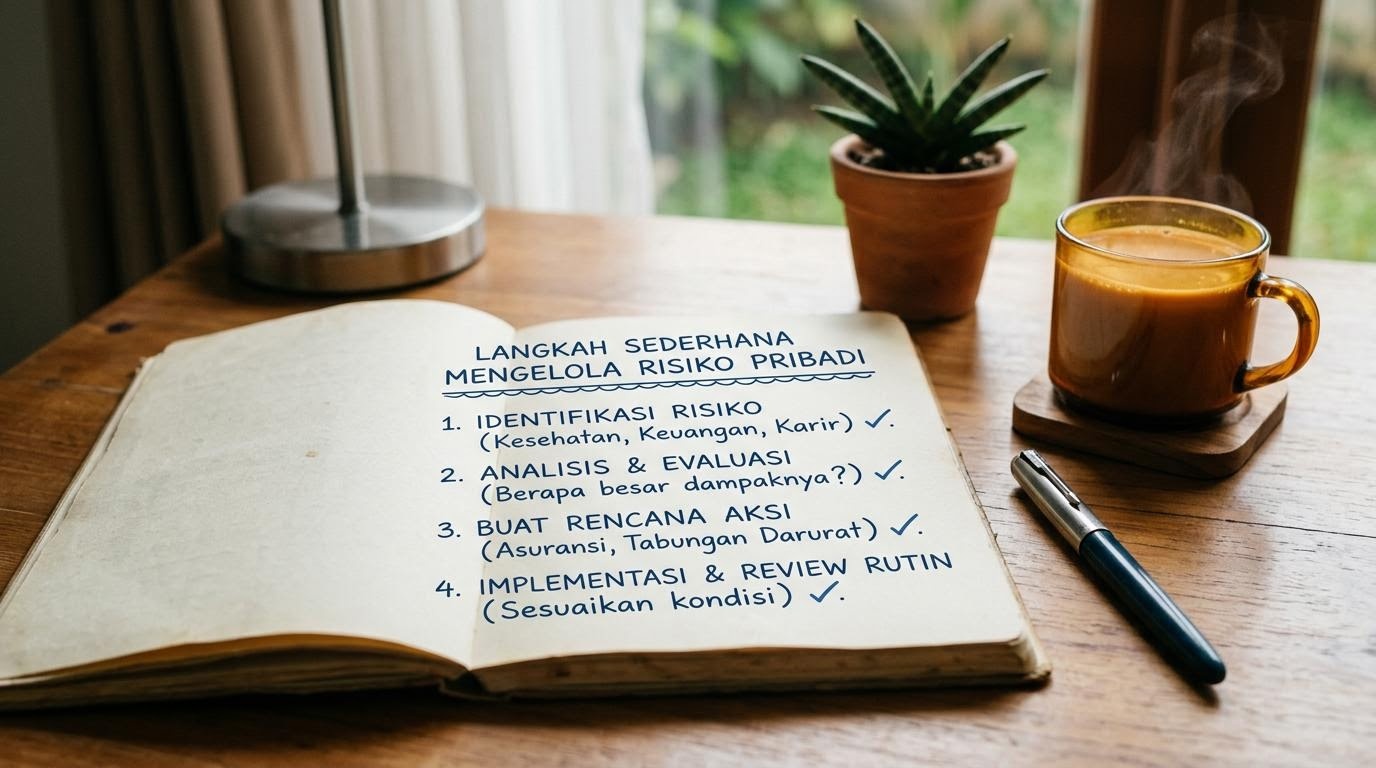 LANGKAH SEDERHANA
MENGELOLA RISIKO PRIBADI
1. IDENTIFIKASI RISIKO
(Kesehatan, Keuangan, Karir) ✓.
2. ANALISIS & EVALUASI
(Berapa besar dampaknya?) ✓.
3. BUAT RENCANA AKSI
(Asuransi, Tabungan Darurat) ✓.
4. IMPLEMENTASI & REVIEW RUTIN
(Sesuaikan kondisi) ✓.